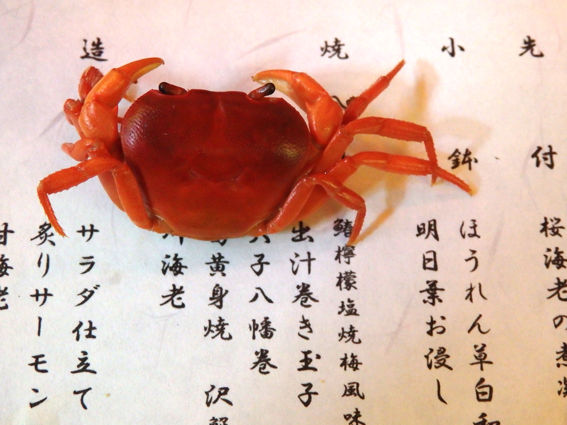 先付
桜海老の煮凍
小鉢
ほうれん草白和
明日葉お浸し
焼
鰆檸檬塩焼梅風味
出汁巻き玉子
穴子八幡巻
黄身焼 沢蟹
海老
造
サラダ仕立て
炙りサーモン
甘海老